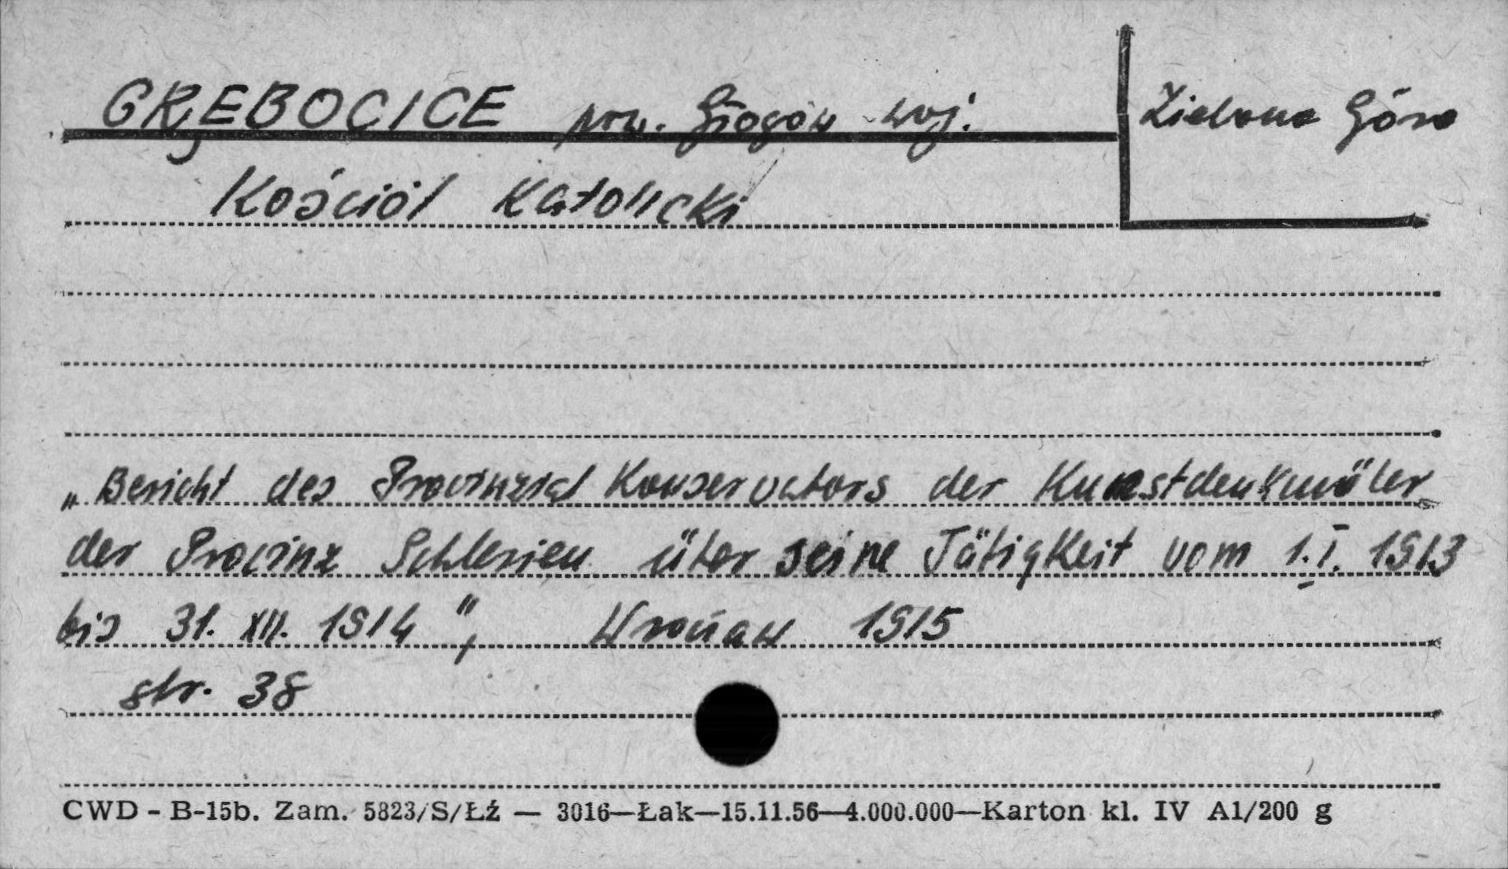 GRĘBOCICE pow. Głogów woj. Zielona Góra
Kościół Katolicki
„Bericht des Provinzial Konservators der Kunstdenkmäler
der Provinz Schlesien über seine Tätigkeit vom 1.I. 1913
bis 31. XII. 1914", Wrocław 1915
str. 38
CWD - B-15b. Zam. 5823/S/Łź — 3016—Łak—15.11.56—4.000.000—Karton kl. IV A1/200 g